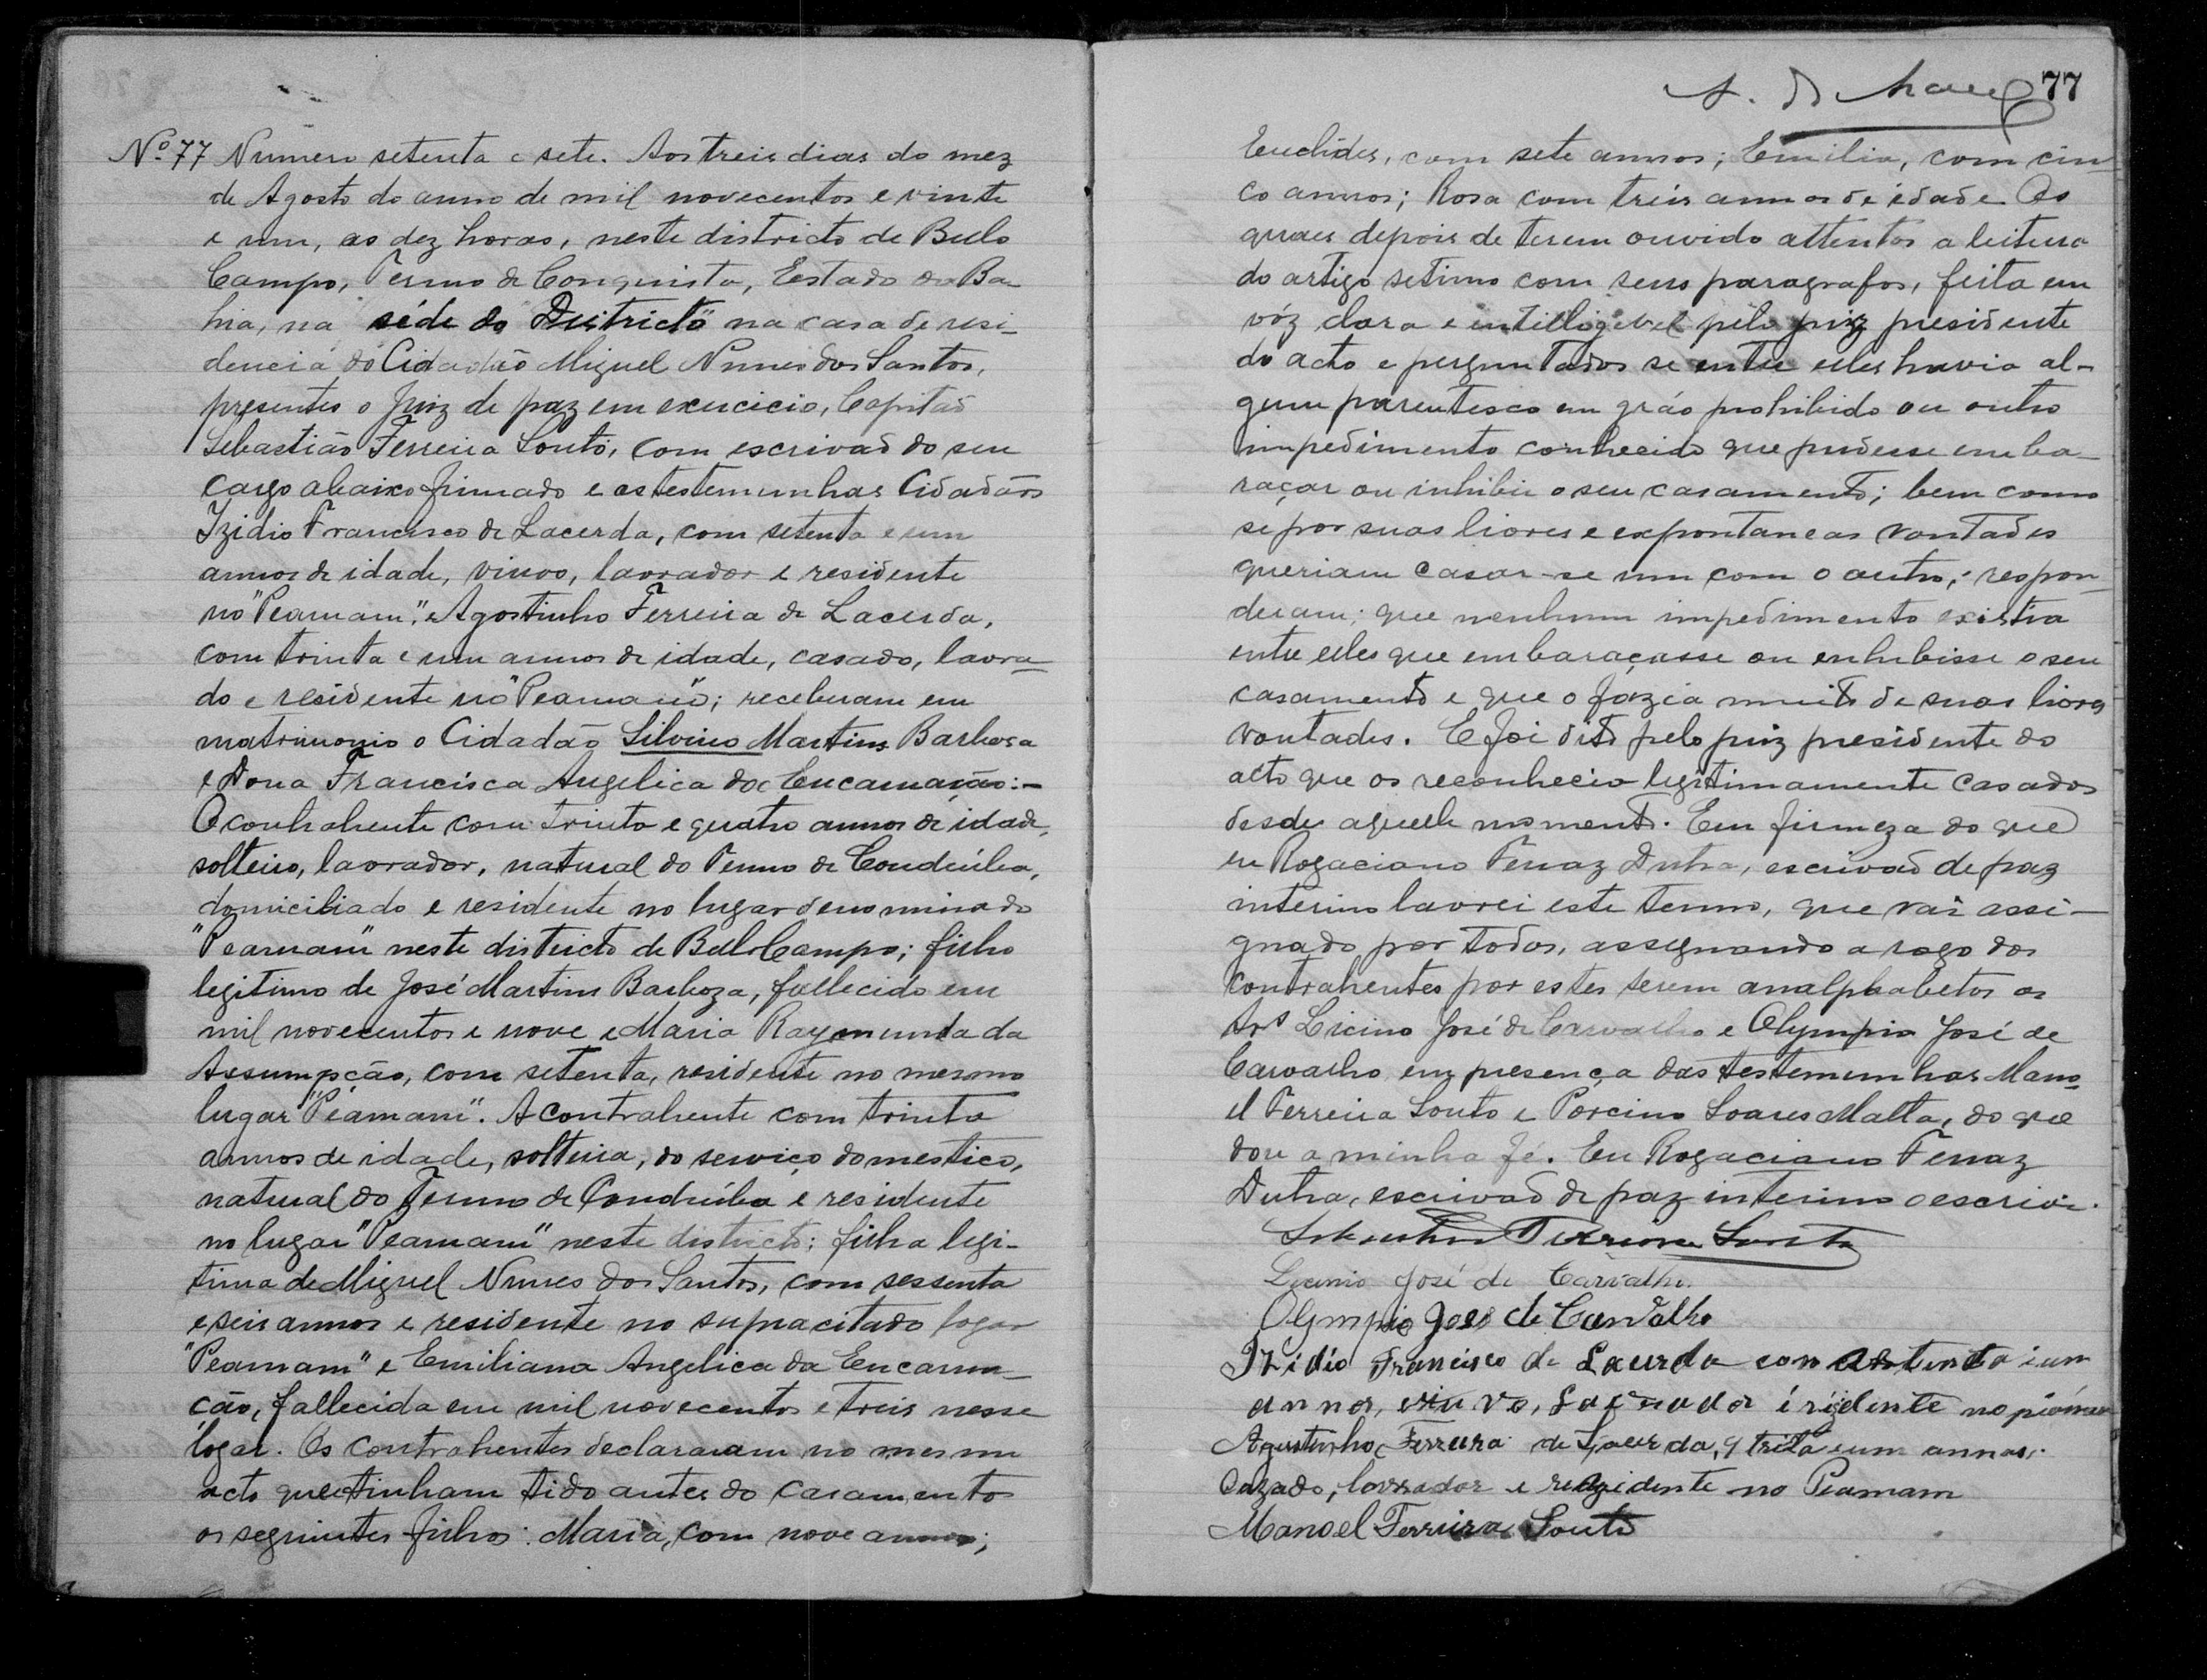 Nº 77 Numero setenta e sete. Aos treis dias do mez
de Agosto do anno de mil novecentos e vinte
e um, as dez horas, neste districto de Bello
Campo, Termo de Conquista, Estado da Ba-
hia, na séde do Districto na casa de resi-
dencia do Cidadão Miguel Nunes dos Santos,
presentes o Juiz de paz em exercicio, Capitão
Sebastião Ferreira Souto, com escrivão do seu
cargo abaixo firmado e as testemunhas Cidadãos
Izidio Francisco de Lacerda, com setenta e um
annos de idade, viuvo, lavrador e residente
no "Peamam", e Agostinho Ferreira de Lacerda,
com trinta e um annos de idade, casado, lavra-
do e residente no "Peamam"; receberam em
matrimonio o Cidadão Silvino Martins Barbosa
e Dona Francisca Angelica da Encarnação:-
O contrahente com trinta e quatro annos de idade,
solteiro, lavrador, natural do Termo de Condeúba,
domiciliado e residente no lugar denominado
"Peamam" neste districto de Bello Campo; filho
legitimo de José Martins Barboza, fallecido em
mil novecentos e nove e Maria Raymunda da
Assumpção, com setenta, residente no mesmo
lugar "Peamam". A contrahente com trinta
annos de idade, solteira, do serviço domestico,
natural do Termo de Condeúba e residente
no lugar "Peamam" neste districto; filha legi-
tima de Miguel Nunes dos Santos, com sessenta
e seis annos e residente no supracitado logar
"Peamam" e Emiliana Angelica da Encarna-
ção, fallecida em mil novecentos e treis nesse
logar. Os contrahentes declararam no mesmo
acto que tinham tido antes do casamento
os seguintes filhos: Maria, com nove annos;
77
Euclides, com sete annos; Emilia, com cin-
co annos; Rosa com treis annos de idade. Os
quaes depois de terem ouvido attentos a leitura
do artigo setimo com seus paragrafos, feita em
vóz clara e intilligivel pelo juiz presidente
do acto e perguntados se entre elles havia al-
gum parentesco em gráo prohibido ou outro
impedimento conhecido que pudesse emba-
raçar ou inhibir o seu casamento; bem como
se por suas livres e expontaneas vontades
queriam casar-se um com o outro; respon-
deram: que nenhum impedimento existia
entre elles que embaraçasse ou enhibisse o seu
casamento e que o fazia muito de suas livres
vontades. E foi dito pelo juiz presidente do
acto que os reconhecia legitimamente casados
desde aquelle momento. Em firmeza do que
eu Rogaciano Ferraz Dutra, escrivão de paz
interino lavrei este termo, que vai assi-
gnado por todos, assignando a rogo dos
contrahentes por estes serem analphabetos os
Srs Licino José de Carvalho e Olympio José de
Carvalho em presença das testemunhas Mano-
el Ferreira Souto e Porcino Soares Malta, do que
dou a minha fé. Eu Rogaciano Ferraz
Dutra, escrivão de paz interino o escrivi.
Sebastião Ferreira Souto
Licinio José de Carvalho.
Olympio José de Carvalho
Izidio Francisco de Lacerda con setenta i um
annos, viuvo, Lavrador i rizidente no
Agustinho Ferreira de Lacerda, trita eum annos.
Cazado, lavrador e rezidente no Peamam
Manoel Ferreira Souto